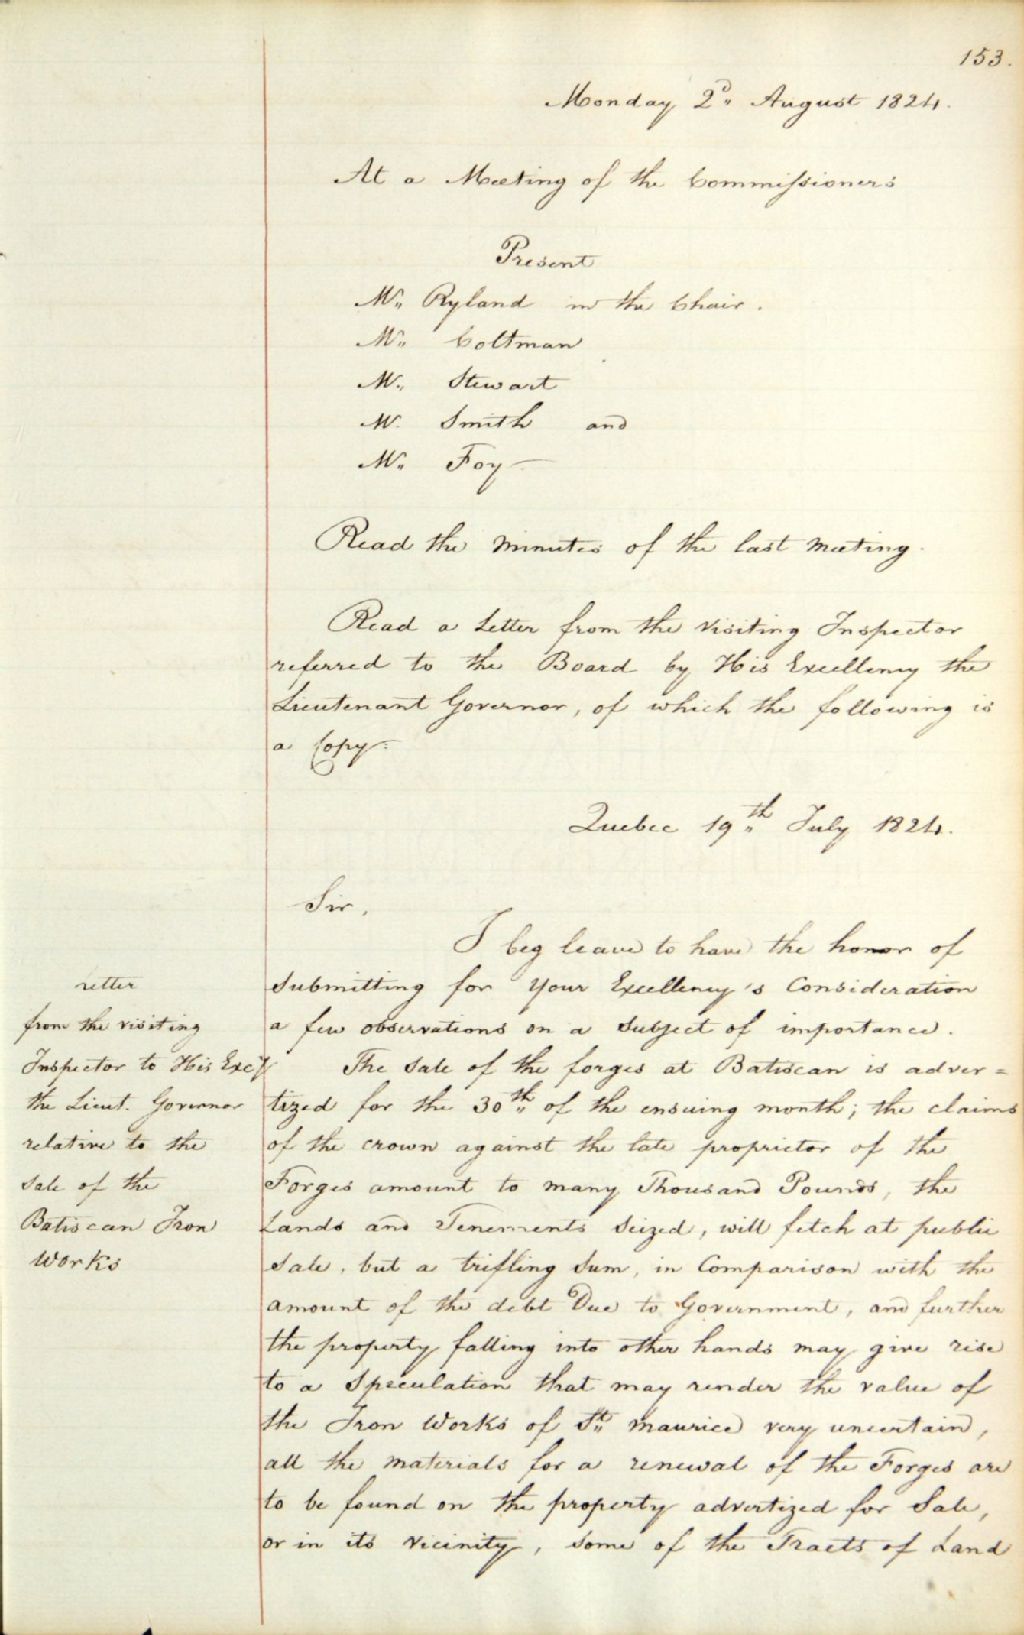 153.
Monday 2d" August 1824.
At a Meeting of the Commissioners
Present
Mr" Ryland in the Chair.
Mr" Coltman
Mr" Stewart
Mr. Smith and
Mr" Foy
Read the Minutes of the last Meeting.
Read a Letter from the visiting Inspector
referred to the Board by His Excellency the
Lieutenant Governor, of which the following is
a Copy.
Quebec 19th" July 1824.
Sir,
I beg leave to have the honor of
submitting for Your Excellency's Consideration
a few observations on a Subject of importance.
The Sale of the forges at Batiscan is adver=
tized for the 30th" of the ensuing month; the claims
of the crown against the late proprietor of the
Forges amount to many Thousand Pounds, the
Lands and Tenements Seized, will fetch at public
Sale, but a trifling Sum, in Comparison with the
amount of the debt Due to Government, and further
the property falling into other hands may give rise
to a Speculation that may render the value of
the Iron Works of St" Maurice very uncertain,
all the materials for a renewal of the Forges are
to be found on the property advertized for Sale,
or in its vicinity, some of the Tracts of Land
Letter
from the visiting
Inspector to His Excy
the Lieut. Governor
relative to the
Sale of the
Batiscan Iron
Works